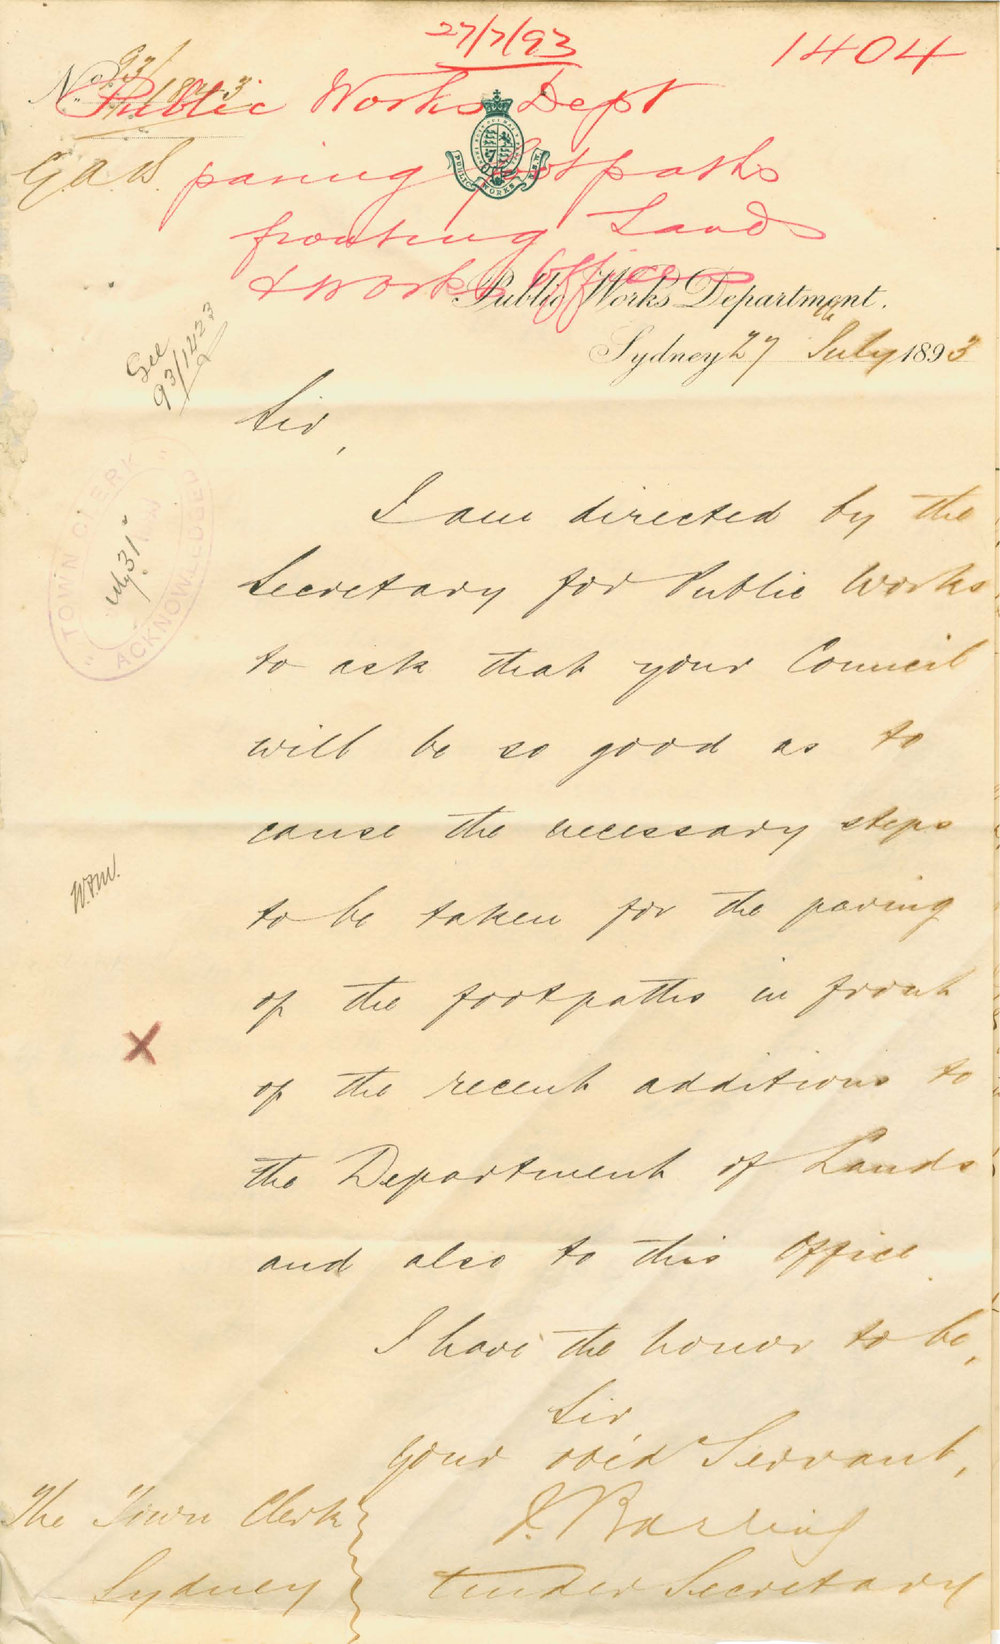 27/7/93
1404
No. 93/
Public Works Dept
G.A.W. paving footpaths
fronting Lands
& Works Offices
PUBLIC WORKS N.S.W.
Public Works Department.
Sydney 27th July 1893
See
93/1423
Sir,
"TOWN CLERK"
July 31
ACKNOWLEDGED
I am directed by the
Secretary for Public Works
to ask that your Council
will be so good as to
cause the necessary steps
to be taken for the paving
of the footpaths in front
of the recent additions to
the Department of Lands
and also to this Office.
I have the honor to be,
Sir,
your obed Servant,
J. Barling
Under Secretary
The Town Clerk
Sydney